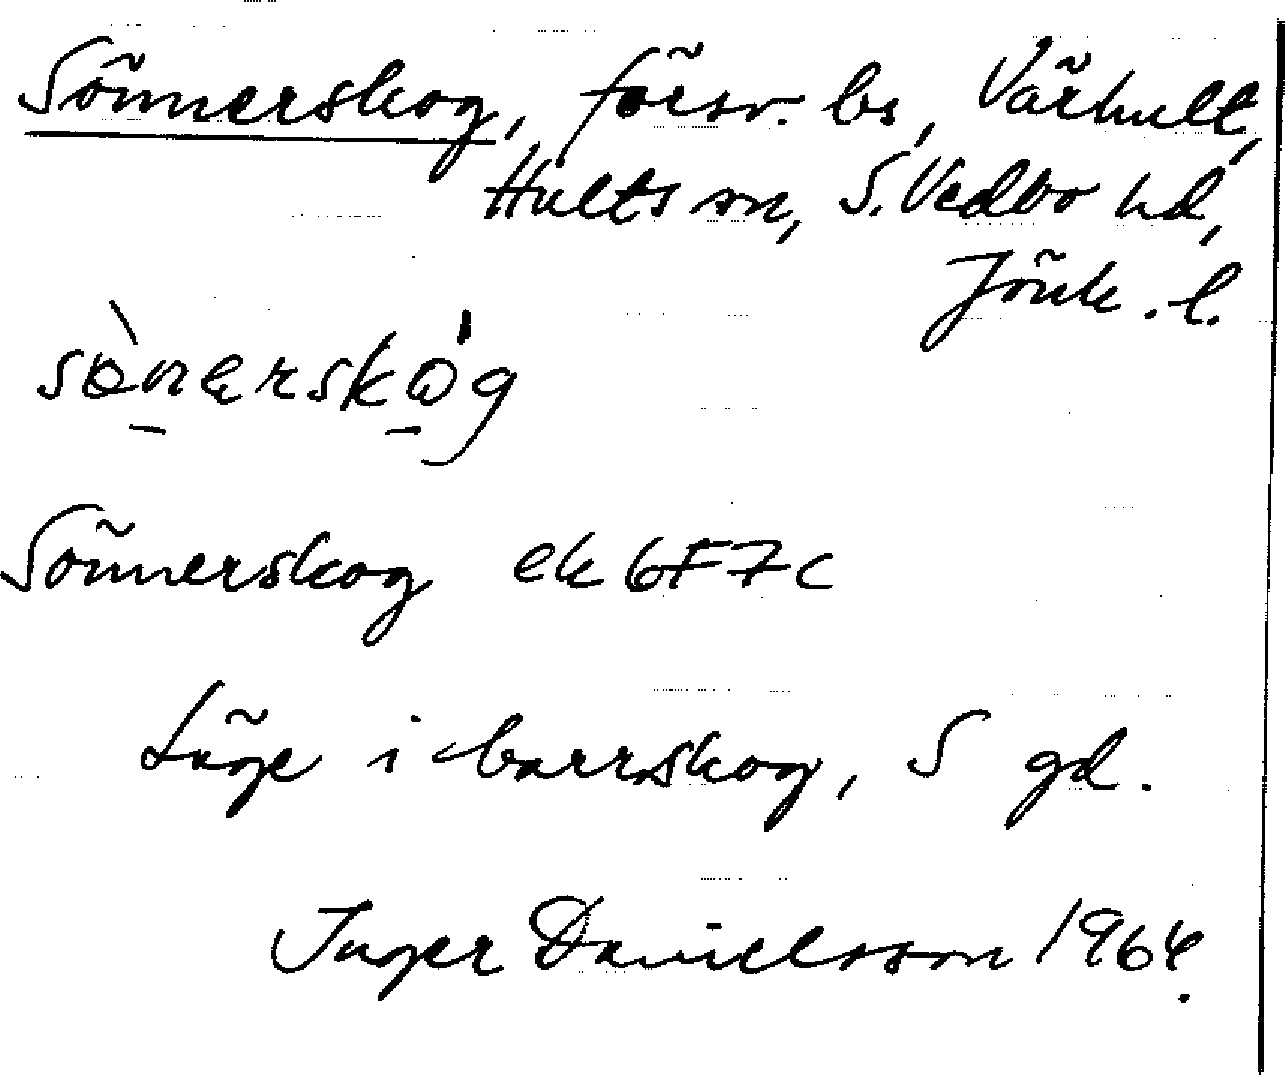 Sönnerskog, försv. bs, Värhult,
Hults sn, S. Vedbo hd,
Jönk. l.
Sönnerskog ek 6F7c
Läge i barrskog, S gd.
Inger Danielsson 1964.